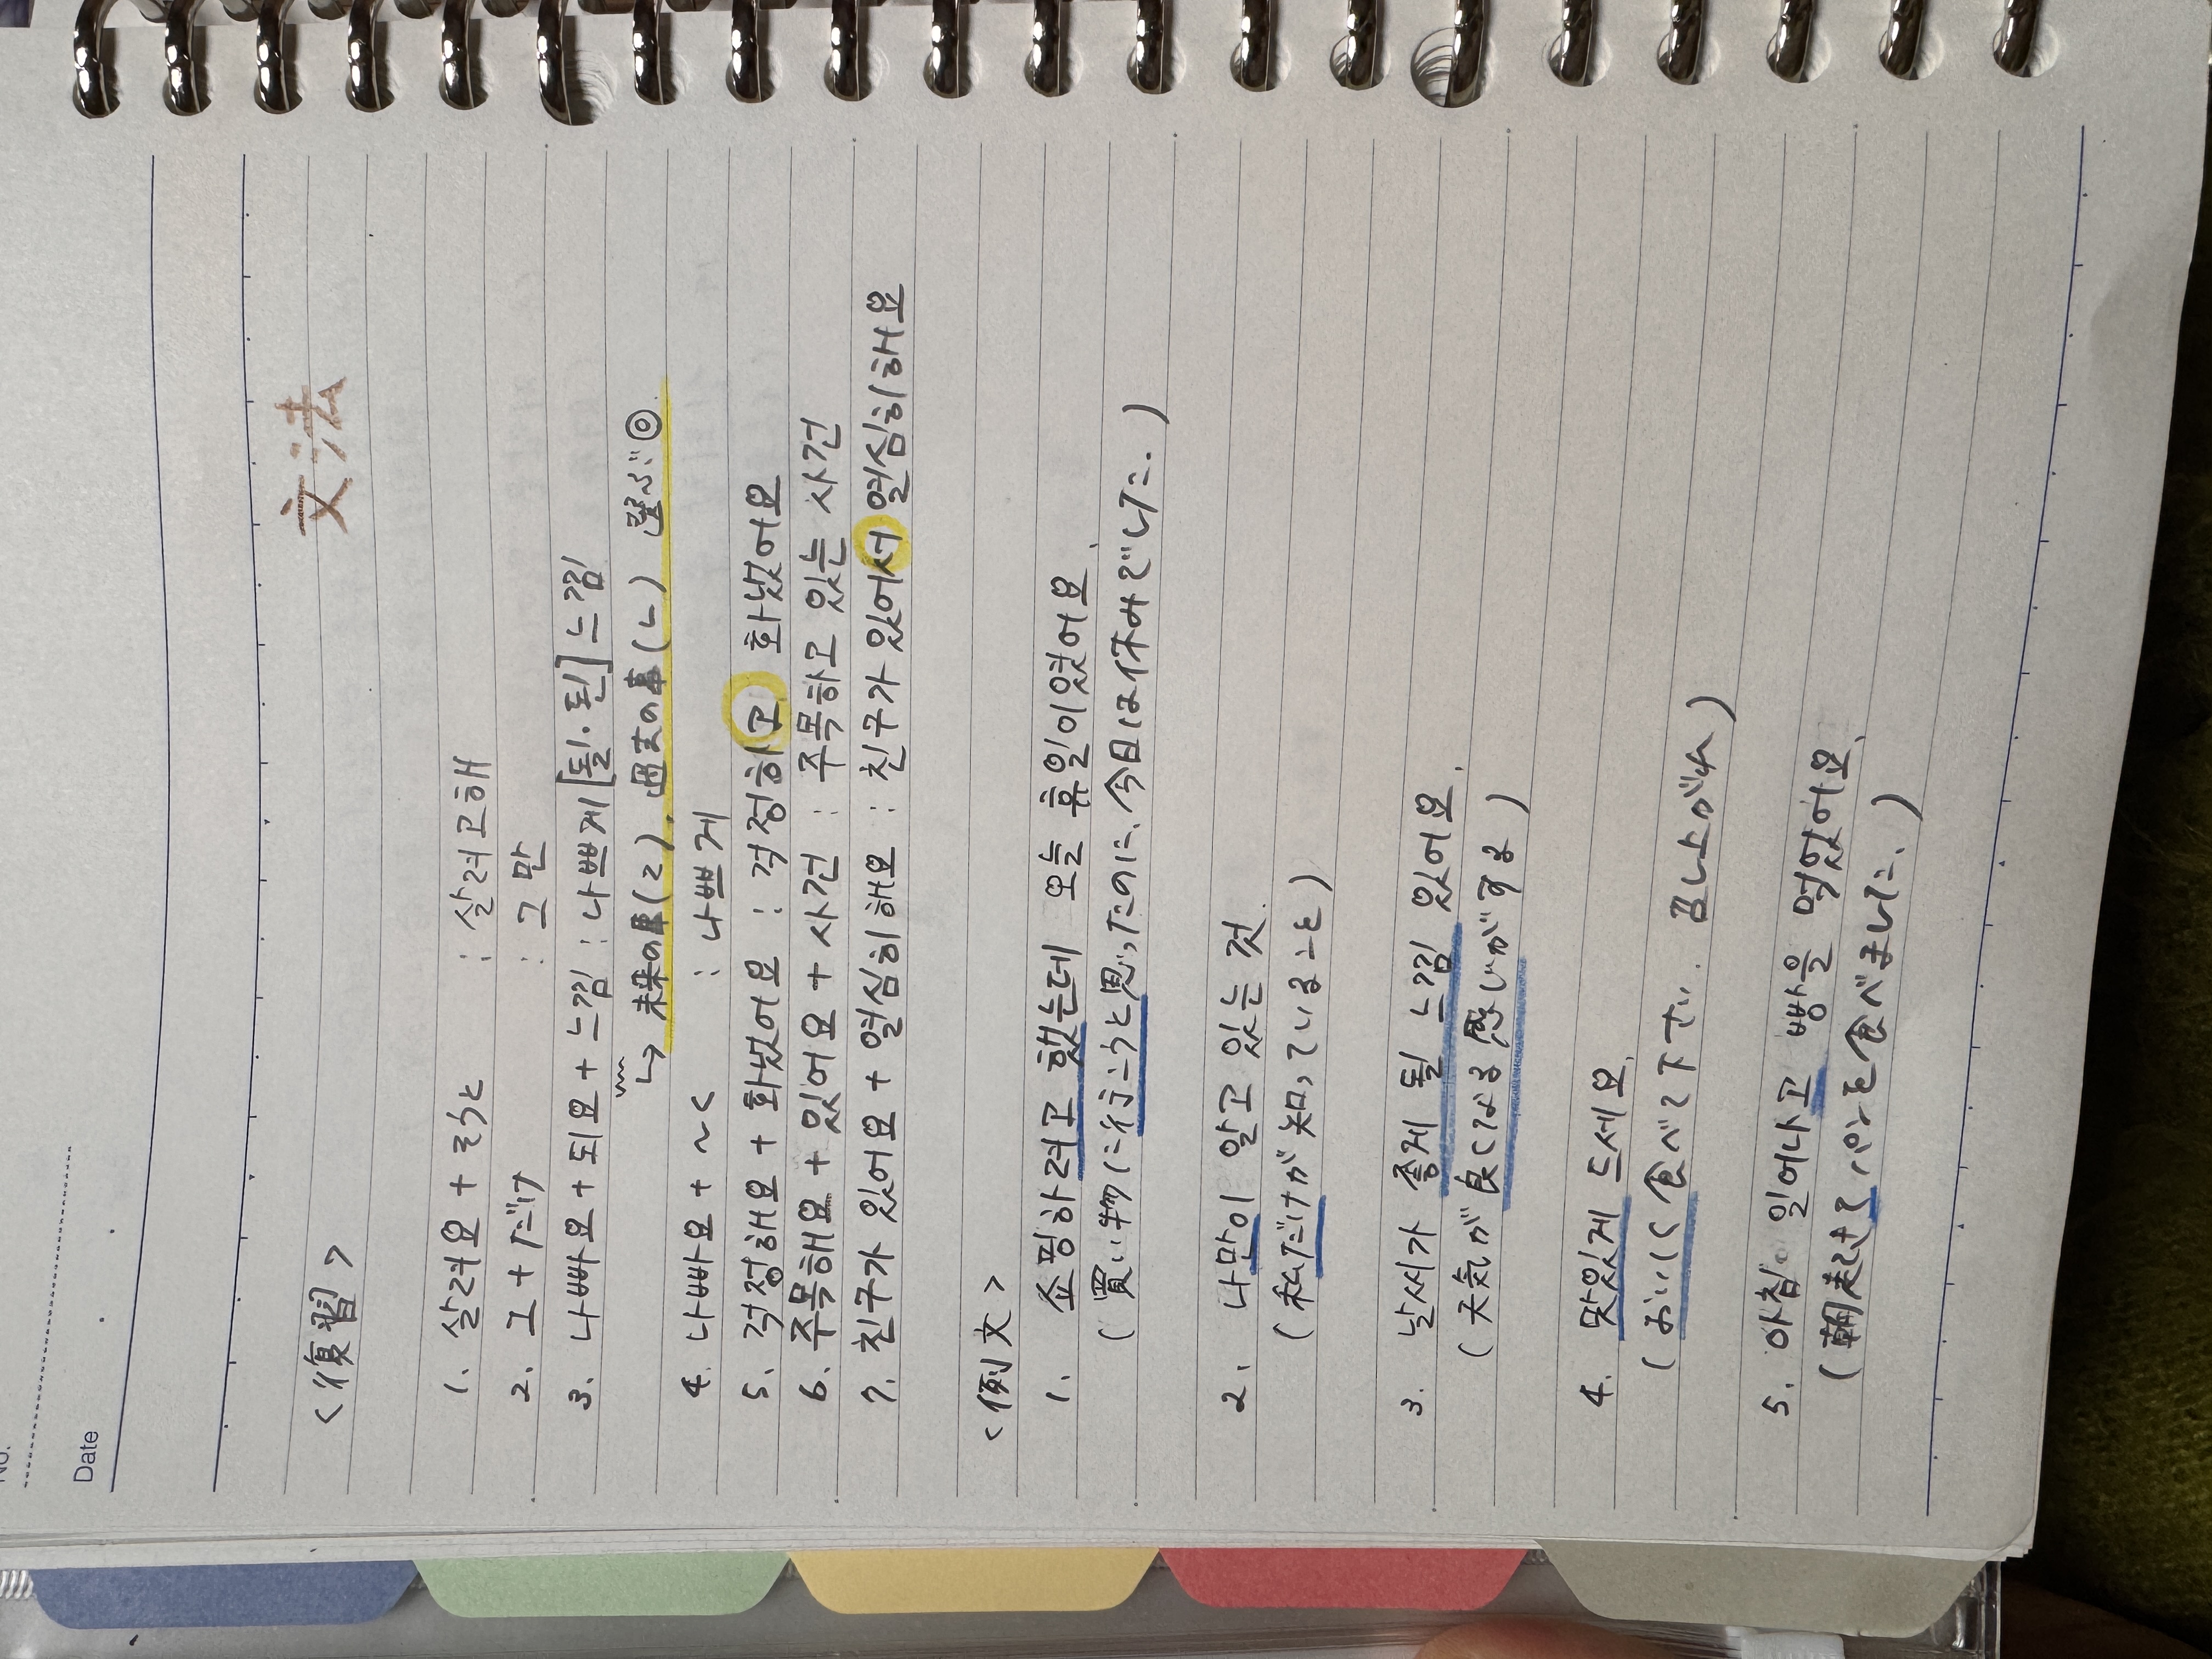 No.
Date
文法
<復習>
1. 살려요 + ろうと : 살려고해
2. 그 + だけ : 그만
3. 나빠요 + 되요 + 느낌 : 나쁘게 [될・된] 느낌
↳ 未来の事(ㄹ)、過去の事(ㄴ) 選ぶ◎
4. 나빠요 + ~く : 나쁘게
5. 걱정해요 + 화났어요 : 걱정하고 화났어요
6. 주목해요 + 있어요 + 사건 : 주목하고 있는 사건
7. 친구가 있어요 + 열심히해요 : 친구가 있어서 열심히해요
<例文>
1. 쇼핑하려고 했는데 오늘 휴일이었어요.
(買い物に行こうと思ったのに、今日は休みでした。)
2. 나만이 알고 있는 것.
(私だけが知っていること)
3. 날씨가 좋게 될 느낌 있어요.
(天気が良くなる感じがする)
4. 맛있게 드세요.
(おいしく食べて下さい。召し上がれ)
5. 아침 일어나고 빵을 먹었어요.
(朝起きてパンを食べました。)